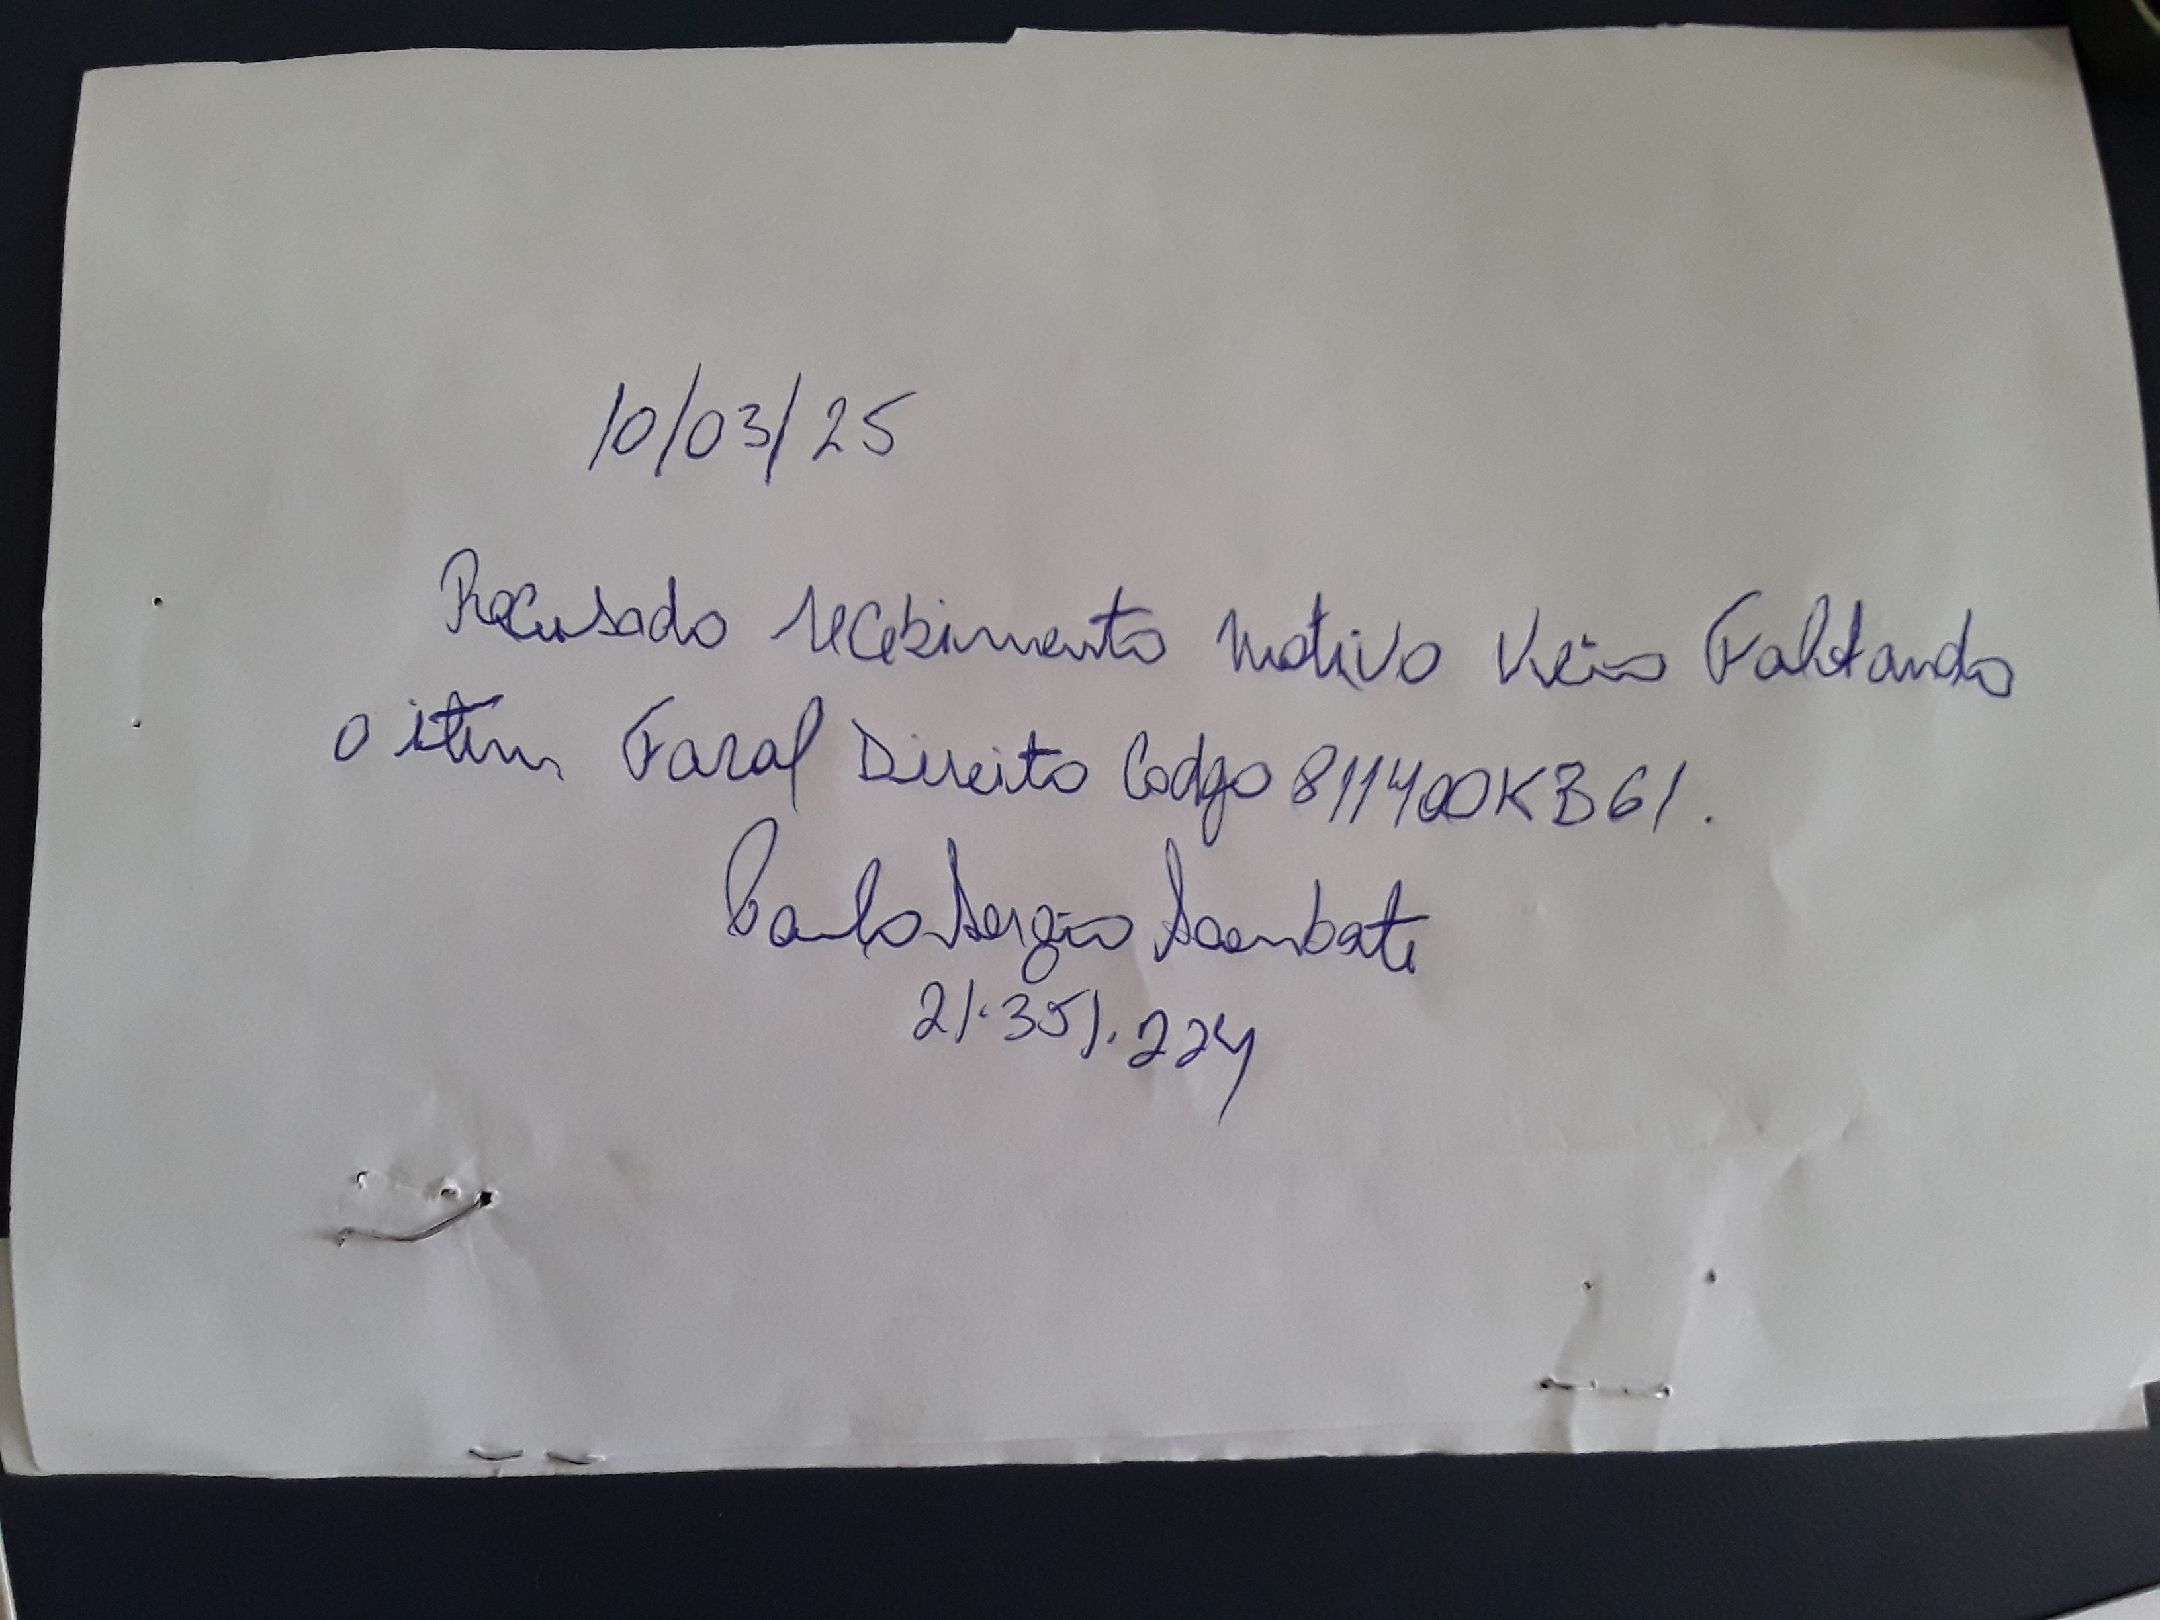 10/03/25
Recusado recebimento Motivo Veio Faltando
o item Farol Direito Codgo 811400KB61.
Paulo Sergio
21.351.224